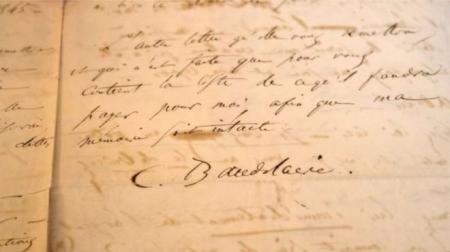 L'autre lettre qu'elle vous remettra,
et qui n'est faite que pour vous
contient la liste de ce qu'il faudra
payer pour moi afin que ma
mémoire soit intacte
C. Baudelaire.